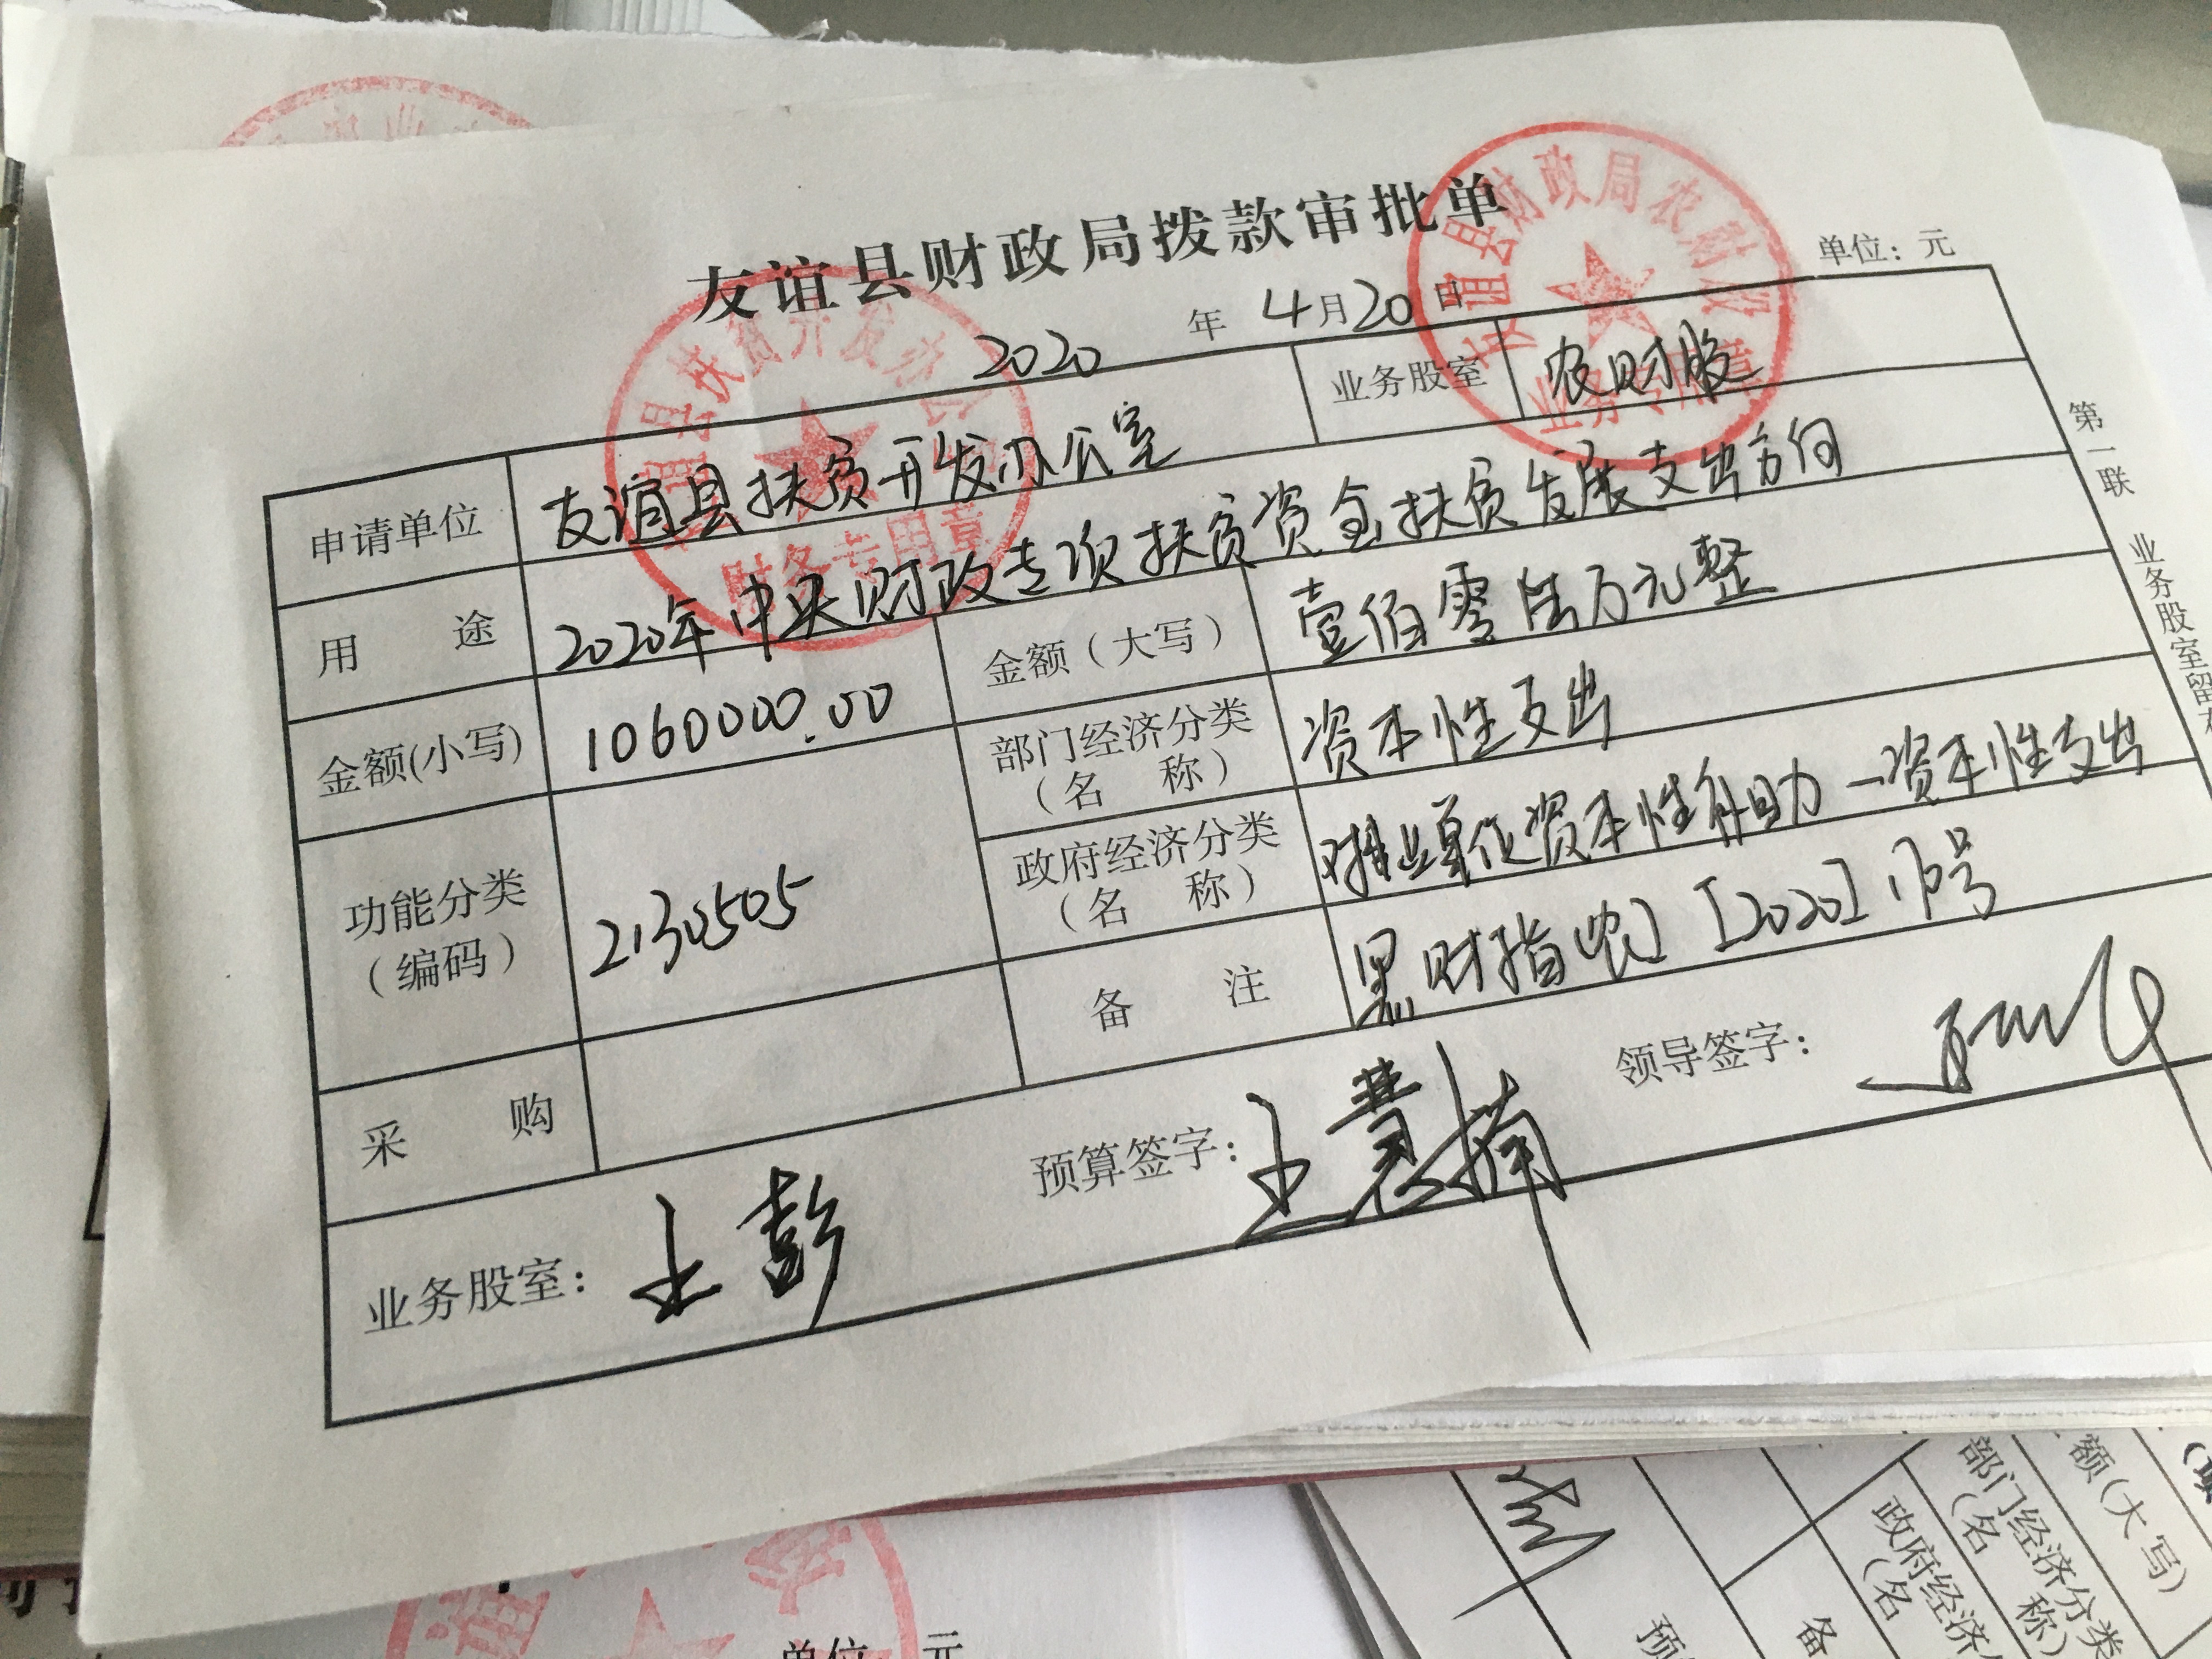 友谊县财政局拨款审批单
2020 年 4月20日
单位：元
申请单位 友谊县扶贫开发办公室 业务股室 农财股
用 途 2020年中央财政专项扶贫资金扶贫发展支出方向
金额(小写) 1060000.00 金额（大写） 壹佰零陆万元整
部门经济分类（名 称） 资本性支出
功能分类（编码） 2130505
政府经济分类（名 称） 对事业单位资本性补助一资本性支出
备 注 黑财指(农)[2020] 号
采 购
业务股室： 王彭 预算签字： 王慧楠 领导签字：
第一联 业务股室留
县扶贫开发办公
财务专用章
友谊县财政局农财股
业务专用章
单位 元
额(大写)
部门经济分类
(名 称)
政府经济
(名
备
预